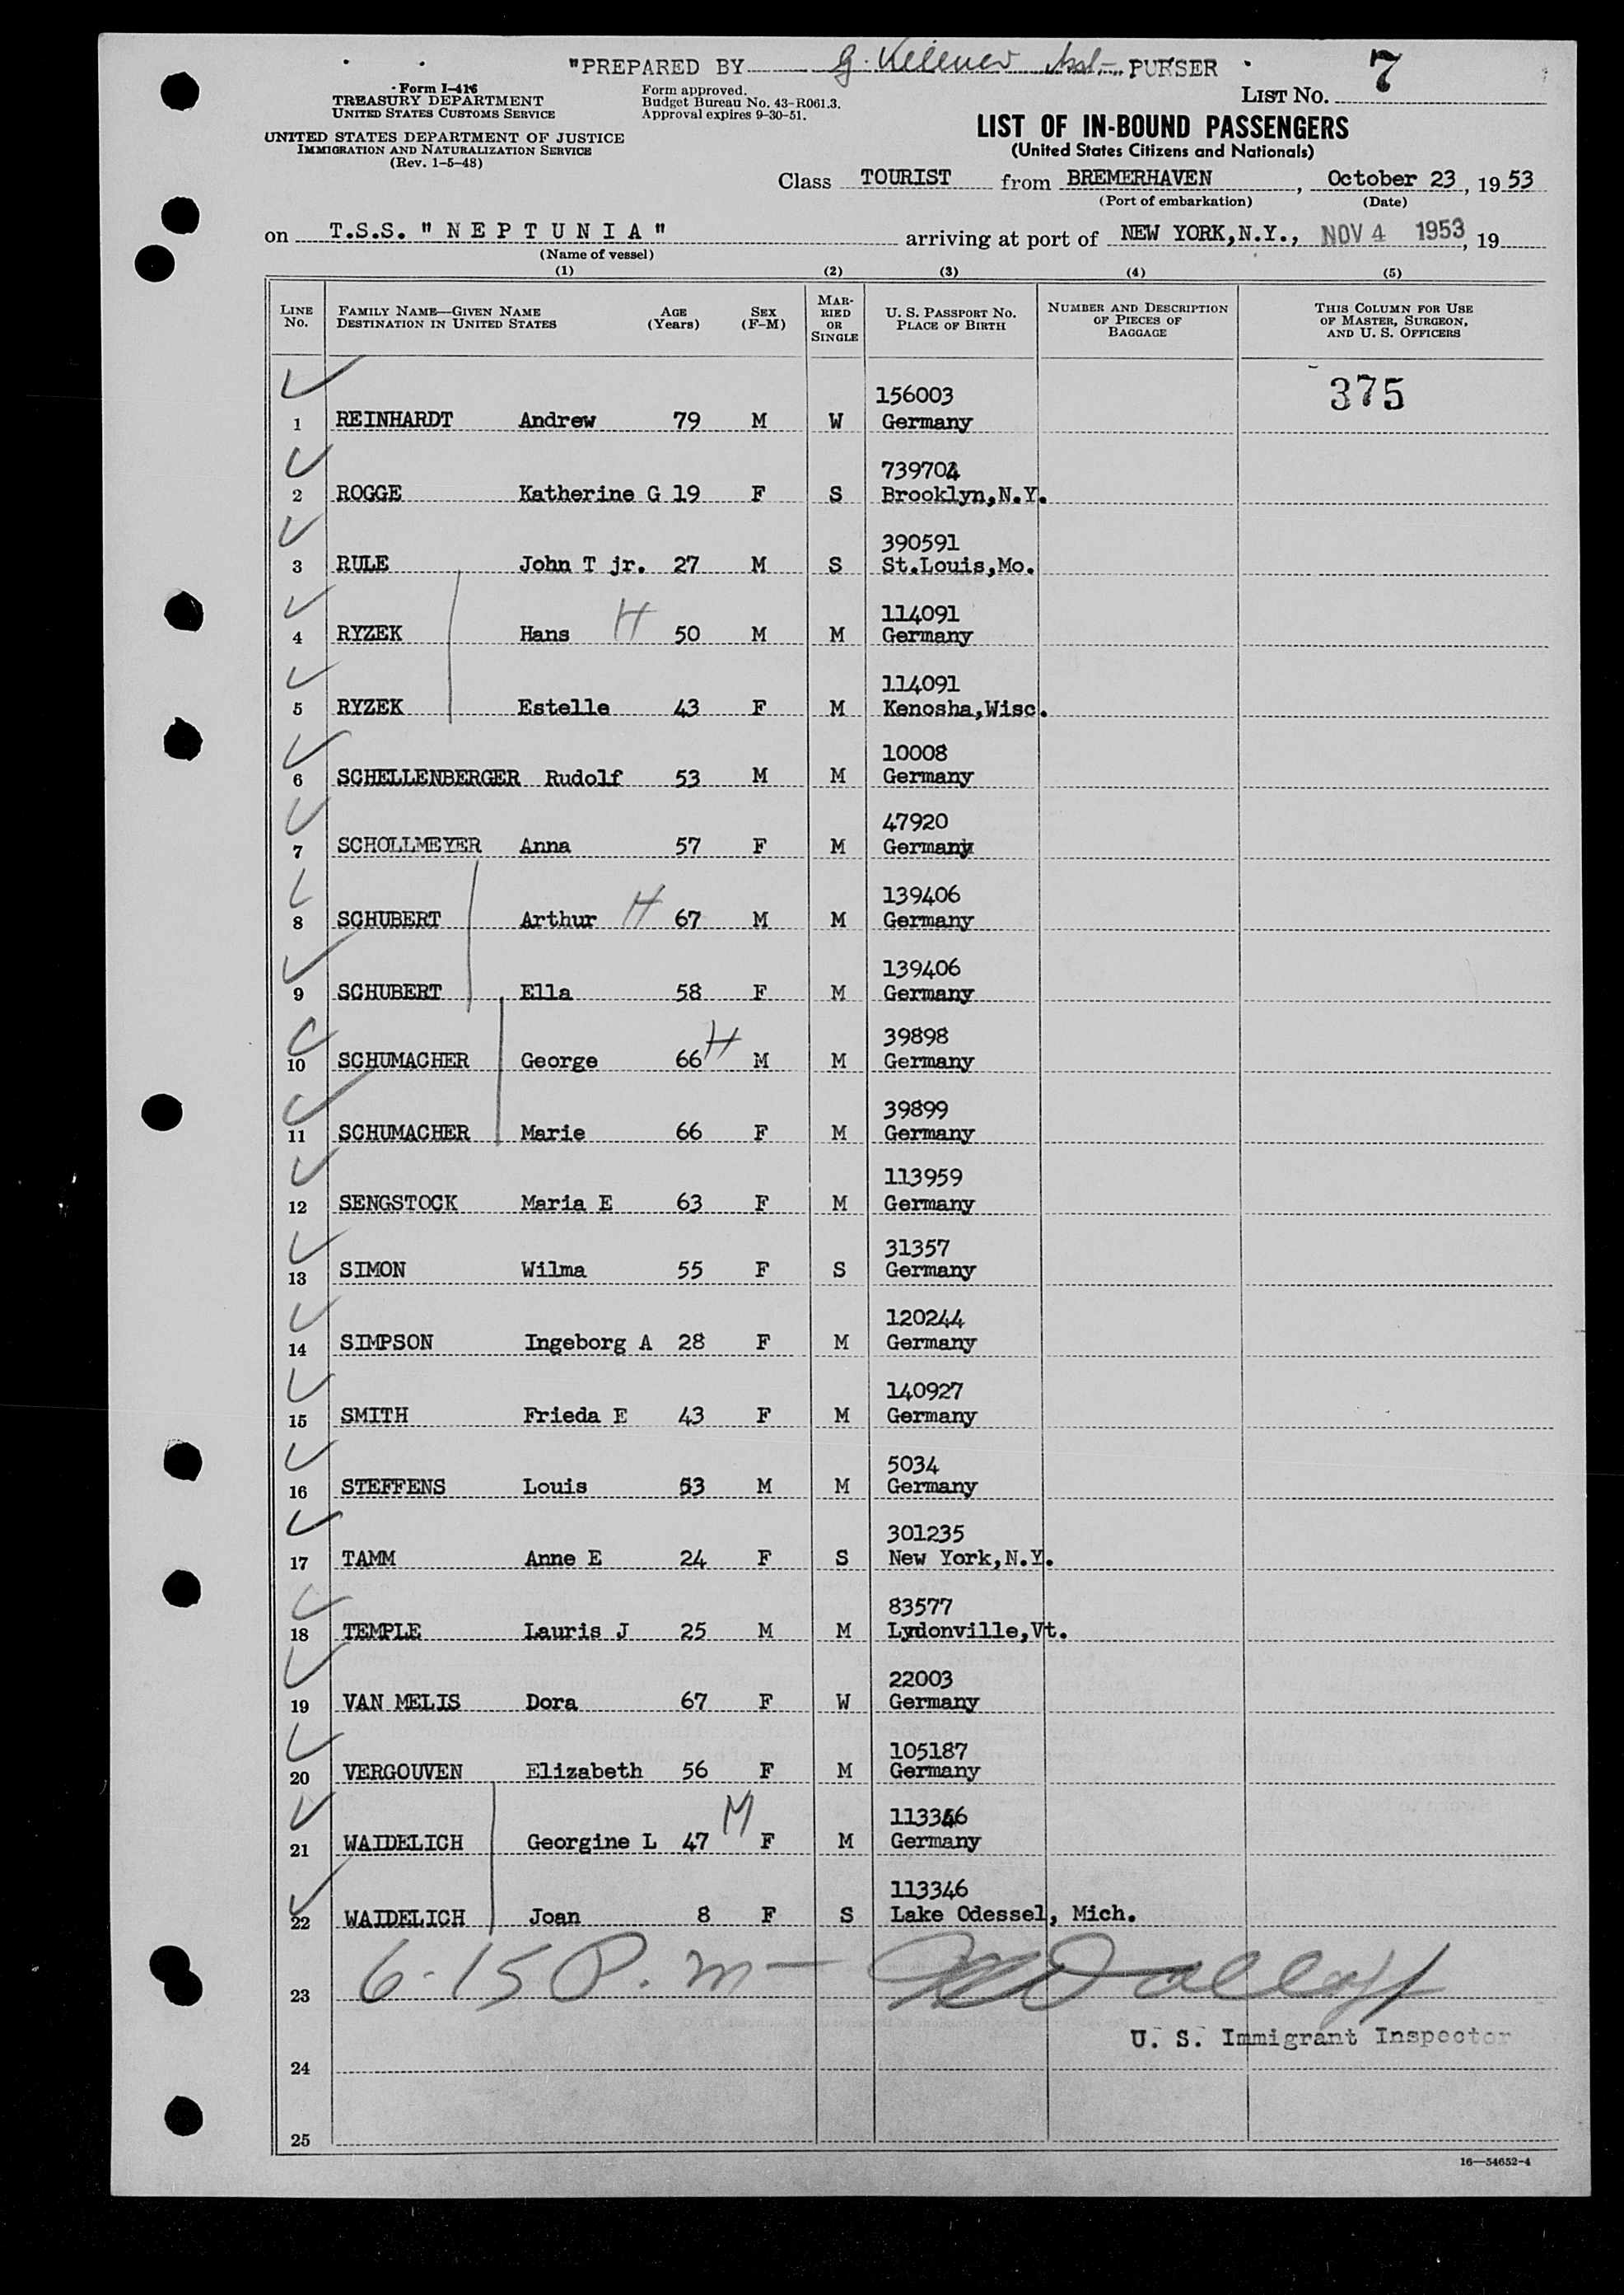 "PREPARED BY G. Asst- PURSER
7
LIST NO.
Form I-416
TREASURY DEPARTMENT
UNITED STATES CUSTOMS SERVICE
UNITED STATES DEPARTMENT OF JUSTICE
IMMIGRATION AND NATURALIZATION SERVICE
(Rev. 1-5-48)
Form approved.
Budget Bureau No. 43-R061.3.
Approval expires 9-30-51.
LIST OF IN-BOUND PASSENGERS
(United States Citizens and Nationals)
Class TOURIST from BREMERHAVEN, October 23, 1953
(Port of embarkation) (Date)
on T.S.S. "N E P T U N I A" arriving at port of NEW YORK,N.Y., NOV 4 1953, 19
(Name of vessel)
(1) (2) (3) (4) (5)
LINE NO.
FAMILY NAME—GIVEN NAME
DESTINATION IN UNITED STATES
AGE (YEARS)
SEX (F-M)
MARRIED OR SINGLE
U. S. PASSPORT NO.
PLACE OF BIRTH
NUMBER AND DESCRIPTION OF PIECES OF BAGGAGE
THIS COLUMN FOR USE OF MASTER, SURGEON, AND U. S. OFFICERS
375
156003
1 REINHARDT Andrew 79 M W Germany
739704
2 ROGGE Katherine G 19 F S Brooklyn,N.Y.
390591
3 RULE John T jr. 27 M S St.Louis,Mo.
114091
4 RYZEK Hans H 50 M M Germany
114091
5 RYZEK Estelle 43 F M Kenosha,Wisc.
10008
6 SCHELLENBERGER Rudolf 53 M M Germany
47920
7 SCHOLLMEYER Anna 57 F M Germany
139406
8 SCHUBERT Arthur H 67 M M Germany
139406
9 SCHUBERT Ella 58 F M Germany
39898
10 SCHUMACHER George 66 H M M Germany
39899
11 SCHUMACHER Marie 66 F M Germany
113959
12 SENGSTOCK Maria E 63 F M Germany
31357
13 SIMON Wilma 55 F S Germany
120244
14 SIMPSON Ingeborg A 28 F M Germany
140927
15 SMITH Frieda E 43 F M Germany
5034
16 STEFFENS Louis 53 M M Germany
301235
17 TAMM Anne E 24 F S New York,N.Y.
83577
18 TEMPLE Lauris J 25 M M Lydonville,Vt.
22003
19 VAN MELIS Dora 67 F W Germany
105187
20 VERGOUVEN Elizabeth 56 F M Germany
113346
21 WAIDELICH Georgine L 47 M F M Germany
113346
22 WAIDELICH Joan 8 F S Lake Odessel, Mich.
6-15 P.m-
23
U. S. Immigrant Inspector
24
25
16—54652-4